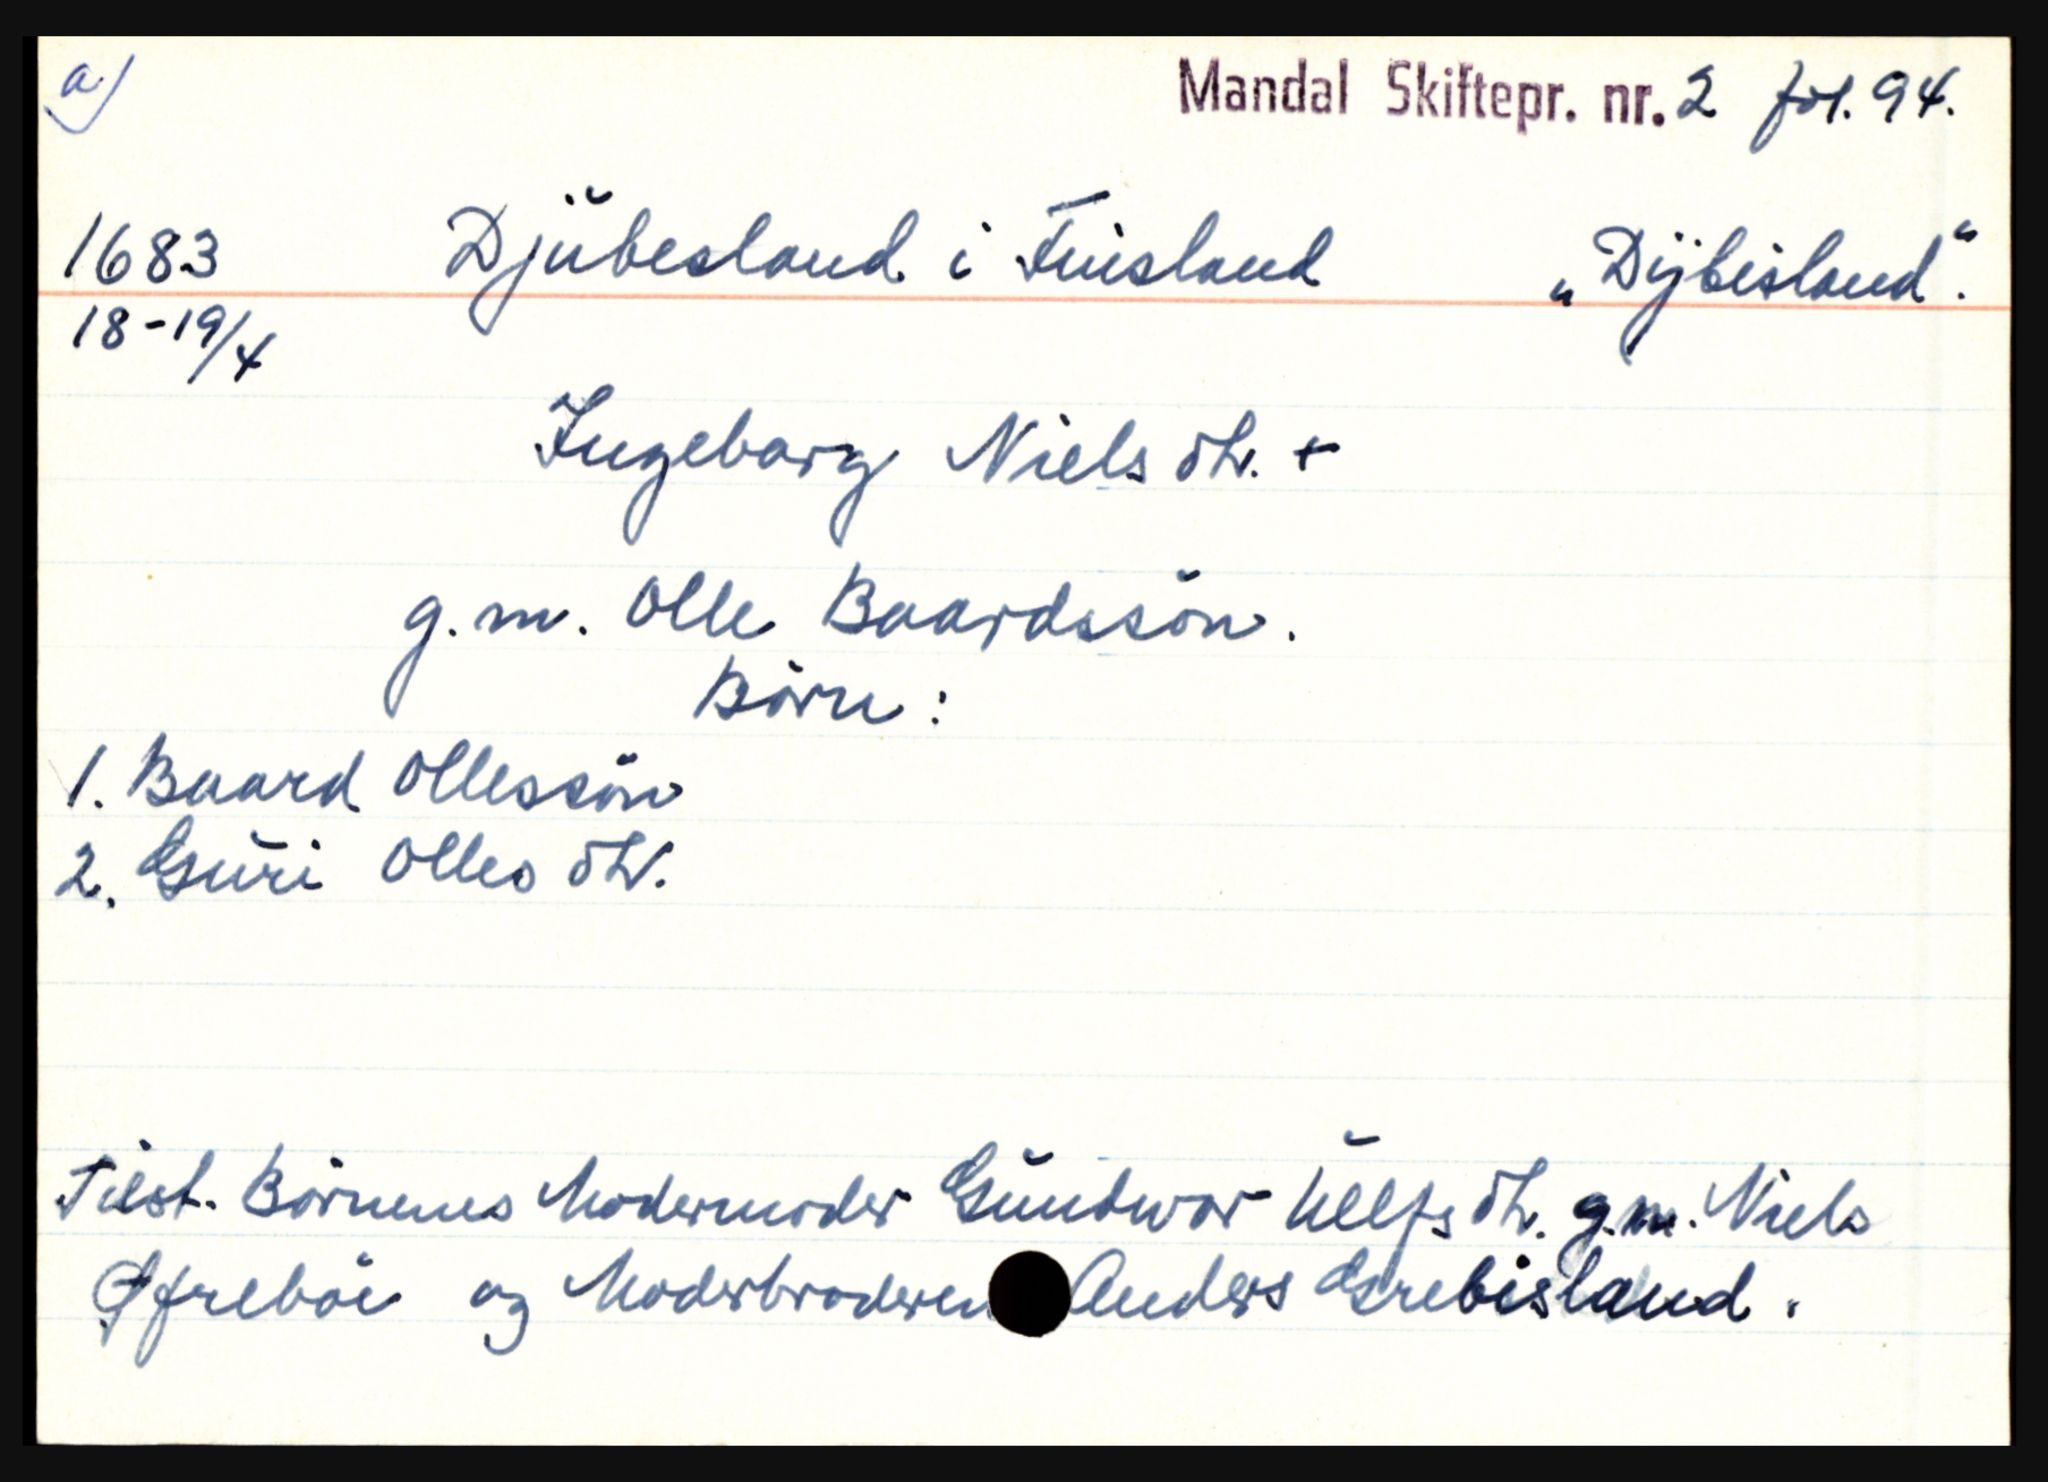 a)
Mandal Skiftepr. nr. 2 fol. 94.
1683 Djŭbesland i Finisland „Dijbisland".
18-19/4
Ingeborg Niels dtr. +
g.m. Olle Baardssön.
Börn:
1. Baard Ollessön
2. Gŭri Olles dtr.
Tilst. Börnenes Modermoder Gŭndwor Ŭllfs dtr. g.m. Niels
Øfreböe og Moderbroderen Anders Grebisland.